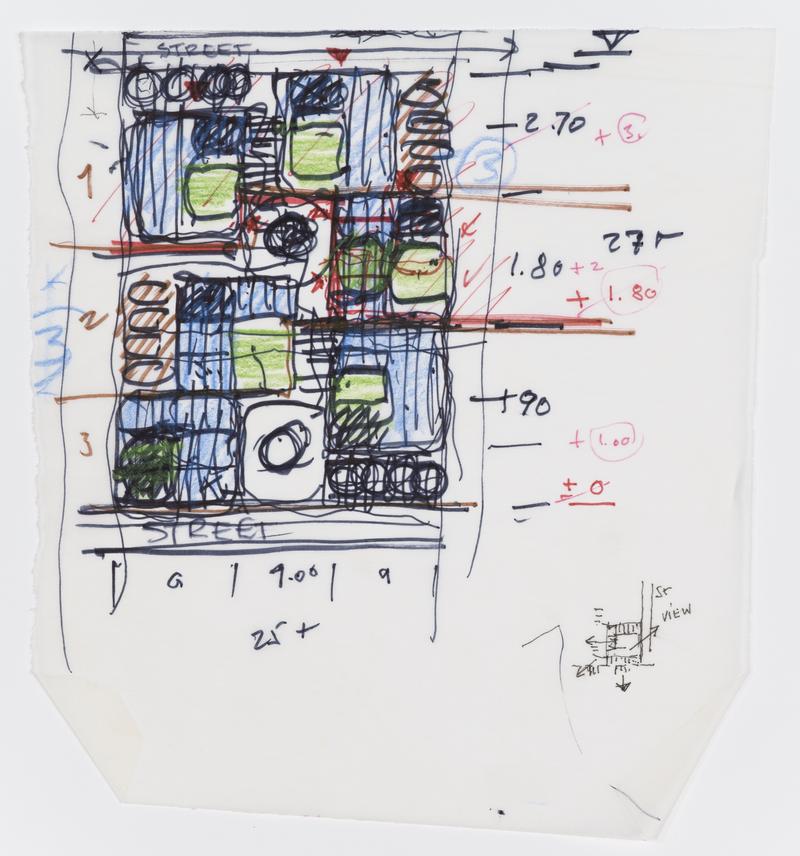 STREET
- 2.70
+ 3.
1
3
27+
1.80 + 2
+ 1.80
2
+90
3
+ 1.00
± 0
STREET
a | 9.00 | a
25+
ST
VIEW